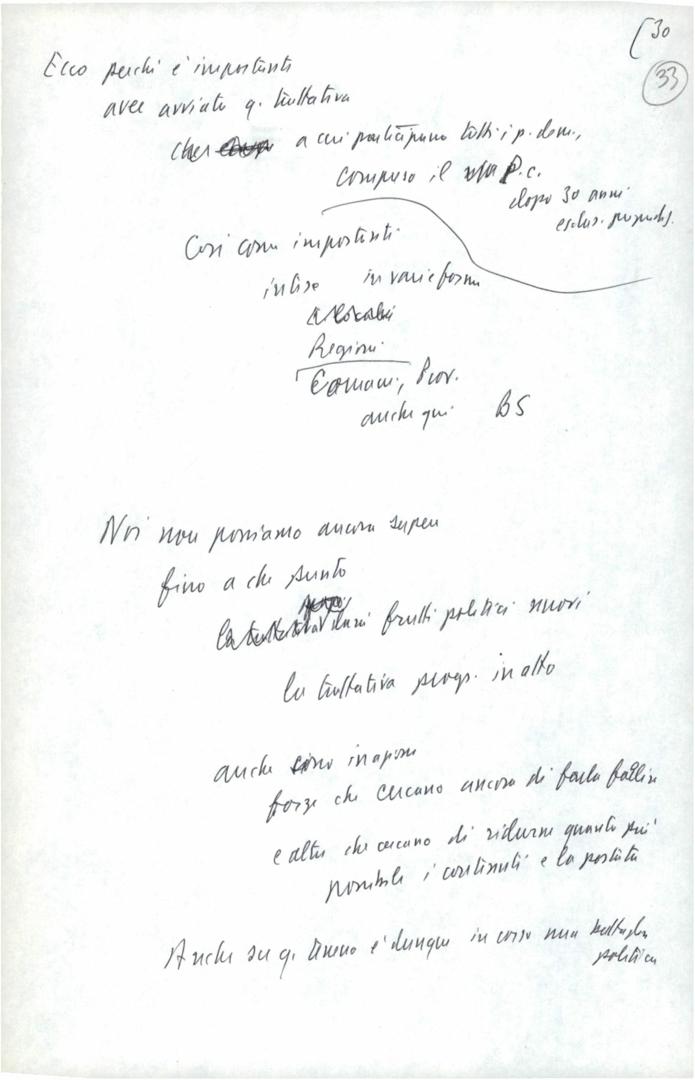 [30
33
Ecco perché è importante
aver avviato q. trattativa
a cui partecipano tutti i p. dem.,
compreso il P.C.
dopo 30 anni
esclus. pregiud.
Così come importanti
intese in varie forme
Regioni
Comuni, Prov.
anche qui BS
Noi non possiamo ancora sapere
fino a che punto
la trattativa darà frutti politici nuovi
la trattativa progr. in atto
anche sono in azione
forze che cercano ancora di farla fallire
e altre che cercano di ridurne quanto più
possibile i contenuti e la portata
Anche su q. terreno è dunque in corso una battaglia
politica